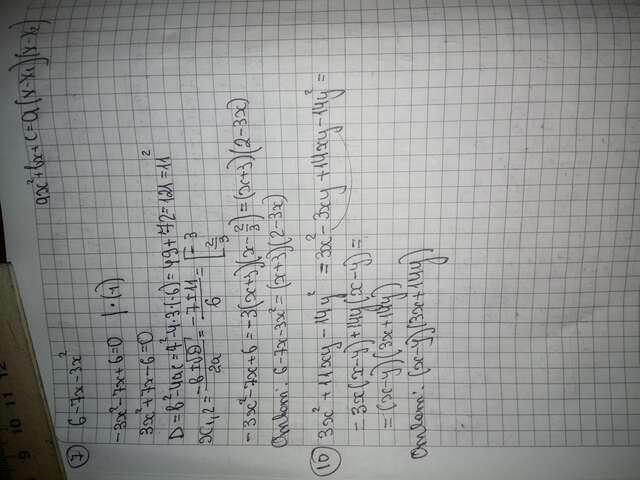 ax²+bx+c=a(x-x₁)(x-x₂)
7 6-7x-3x²
-3x²-7x+6=0 |·(-1)
3x²+7x-6=0
D=b²-4ac=7²-4·3·(-6)=49+72=121=11²
x₁,₂=(-b±√D)/2a=(-7±11)/6=[-3; 2/3
-3x²-7x+6=-3(x+3)(x-2/3)=(x+3)(2-3x)
Ответ: 6-7x-3x²=(x+3)(2-3x)
10 3x²+11xy-14y²=3x²-3xy+14xy-14y²=
=3x(x-y)+14y(x-y)=
=(x-y)(3x+14y)
Ответ: (x-y)(3x+14y)
9 10 11 12